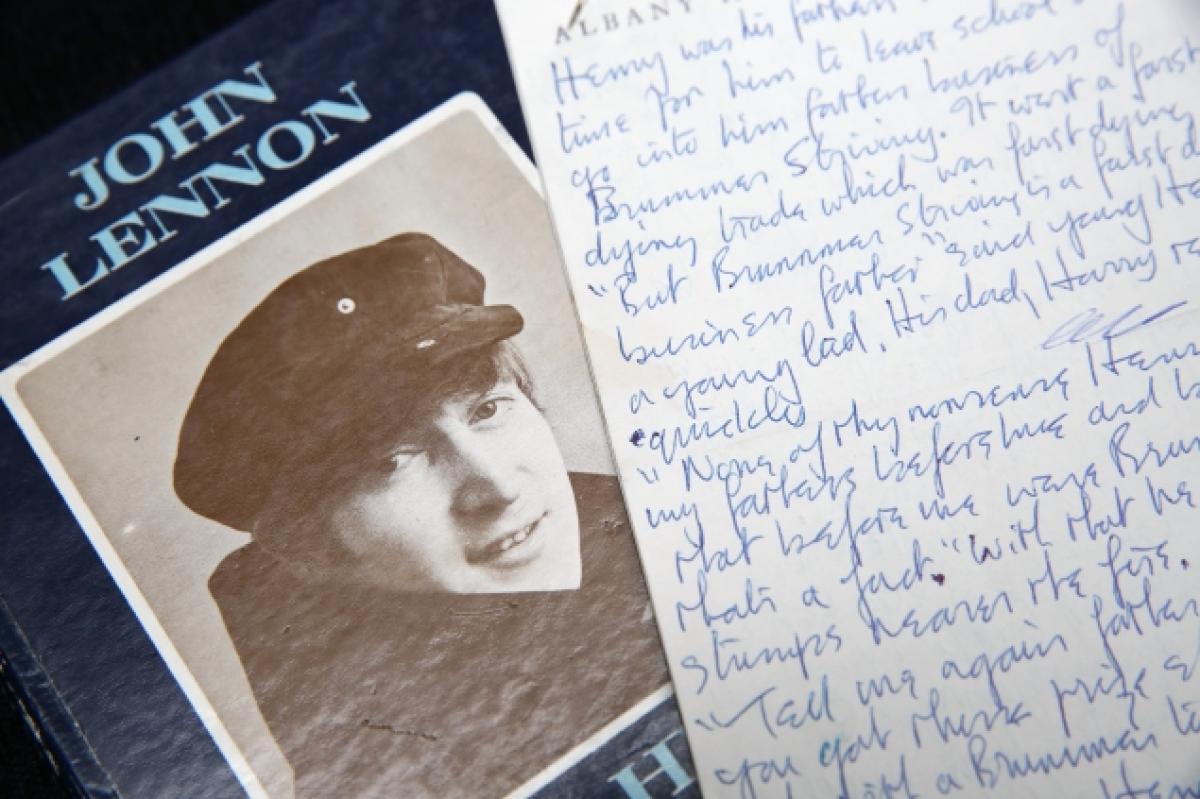 JOHN
LENNON
H
ALBANY
Henry was his fathers
time for him to leave school
go into him fathers business of
Brummer Striving. It wart a farst
dying trade which was farst dying
"But Brummer Striving is a farst
business farther" said young
a young lad. His dad, Harry
quickly
"None of thy nonsense
my fathers before me and
that before me were
thats a fact." with that he
stumps nearer the fire.
"Tell me again father
you got there prize
a Brummer